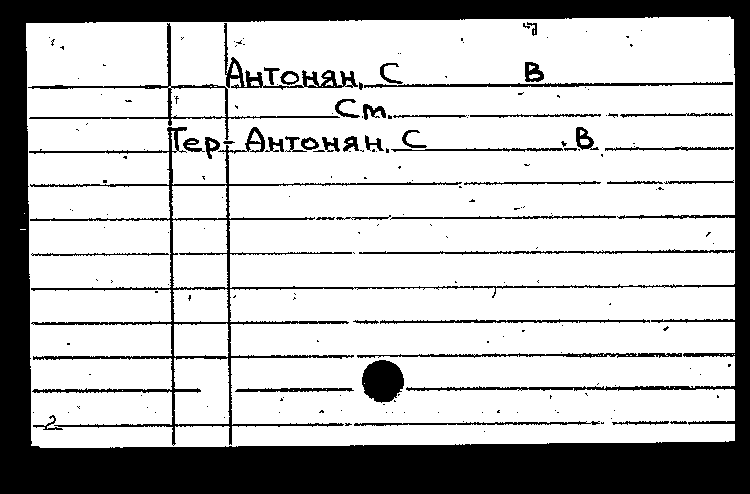 Антонян, С В
См.
Тер-Антонян, С .В.
2